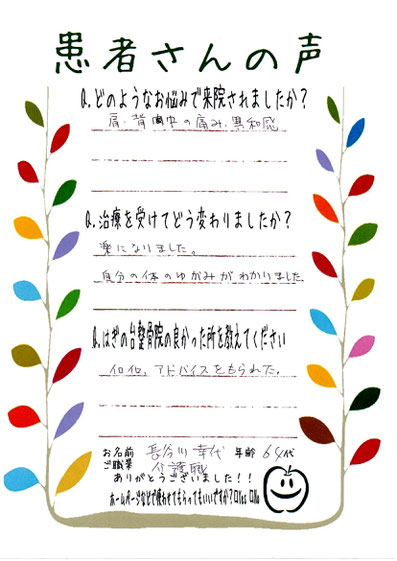 患者さんの声
Q.どのようなお悩みで来院されましたか？
肩、背中の痛み、異和感
Q.治療を受けてどう変わりましたか？
楽になりました。
自分の体のゆがみがわかりました
Q.はぎの台整骨院の良かった所を教えてください
色々、アドバイスをもらえた。
お名前 長谷川 幸代 年齢 64代
ご職業 介護職
ありがとうございました！！
ホームページなどで使わせてもらってもいいですか？□Yes □No